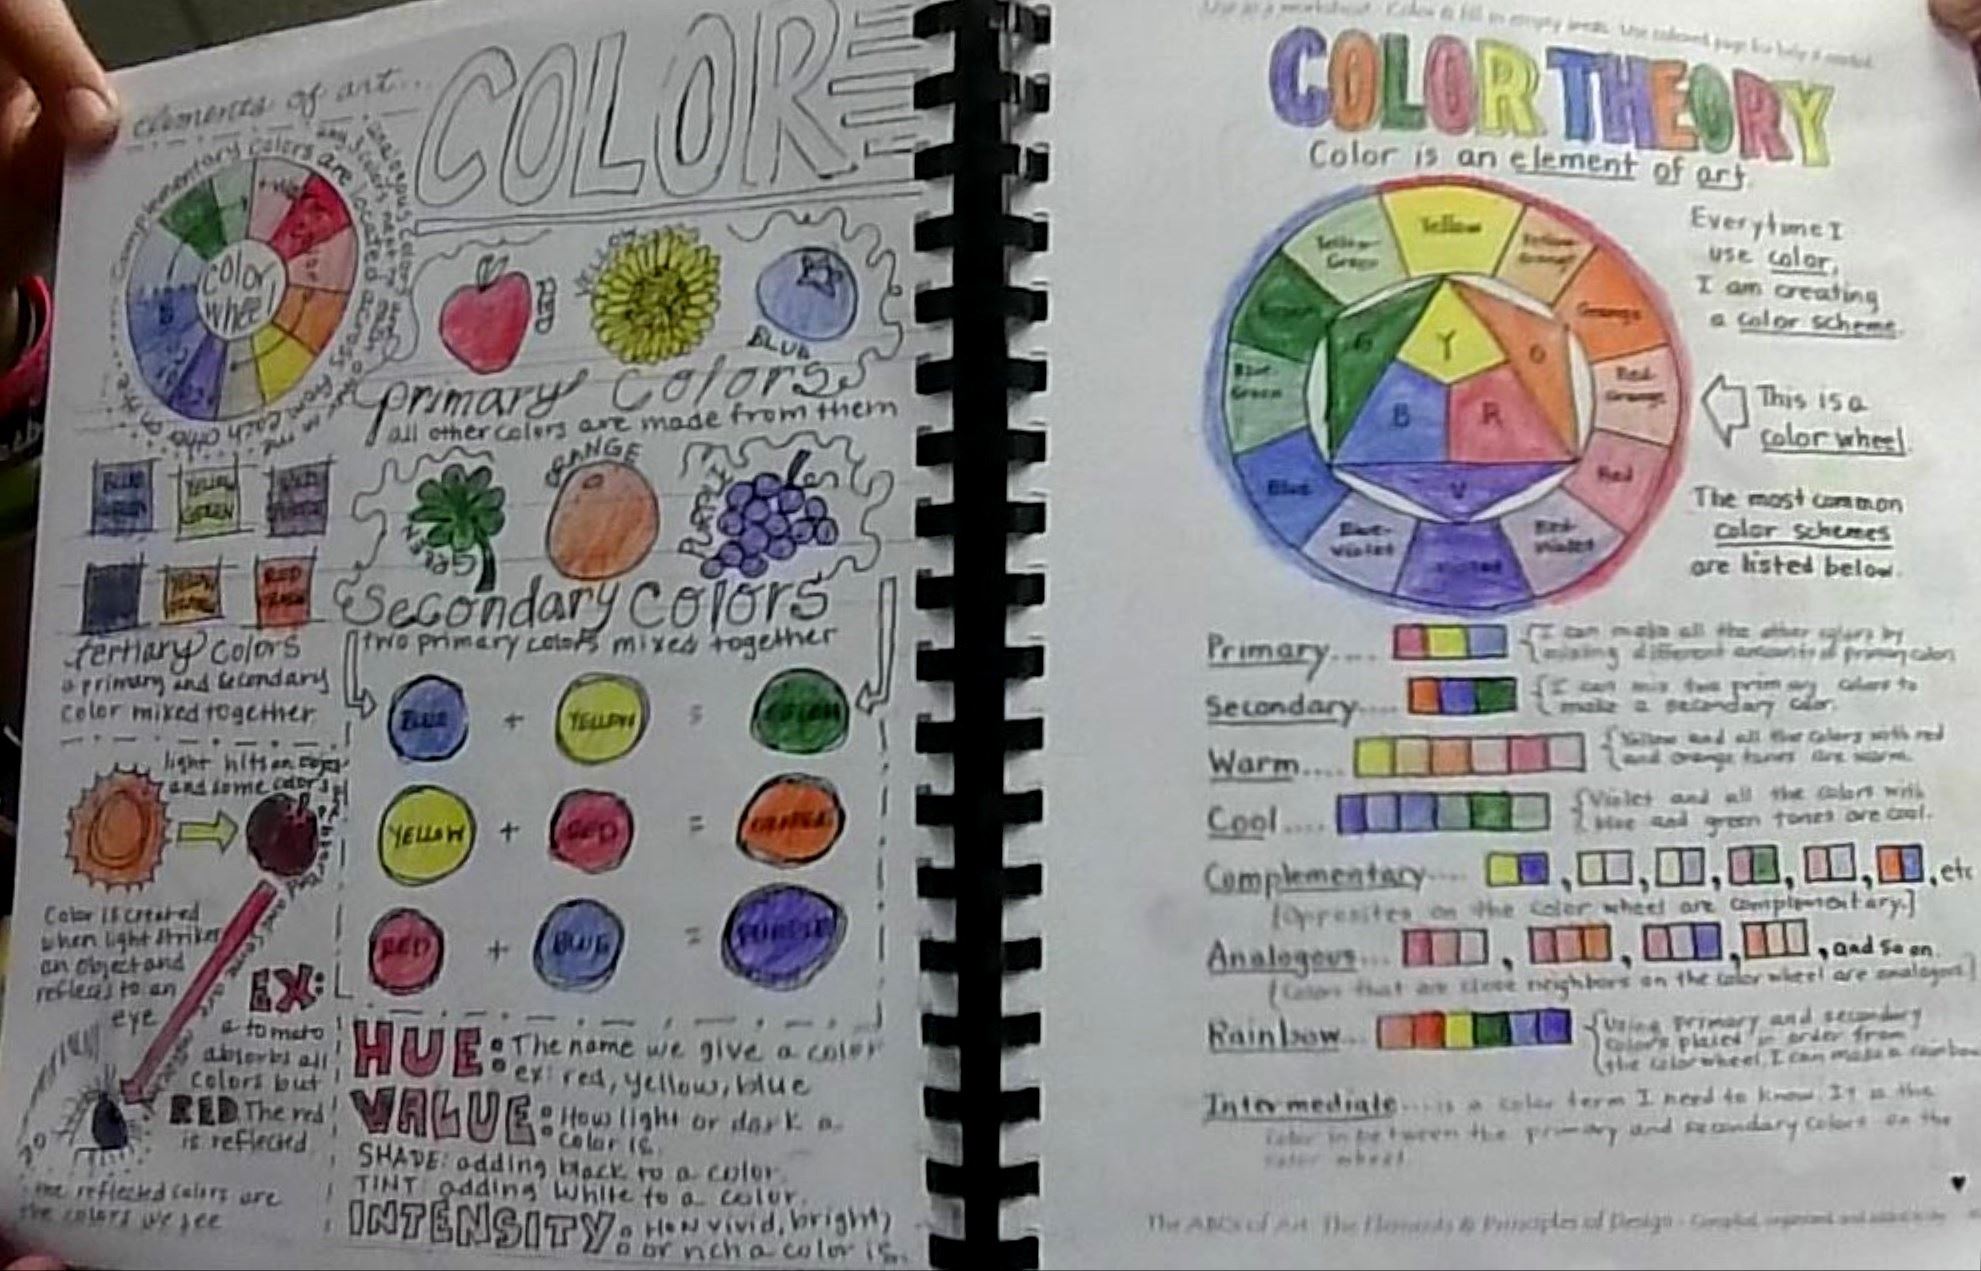 elements of art...
COLOR
Complementary colors are located across from each other on the
color wheel
Analogous colors
any 3 colors next to each other
RED
YELLOW
BLUE
primary colors
all other colors are made from them
BLUE GREEN
YELLOW GREEN
RED
YELLOW ORANGE
RED ORANGE
tertiary colors
a primary and secondary
color mixed together
GREEN
ORANGE
PURPLE
secondary colors
two primary colors mixed together
BLUE + YELLOW = GREEN
YELLOW + RED = ORANGE
RED + BLUE = PURPLE
light hits an object
and some colors
Color is created
when light strikes
an object and
reflects to an
eye
EX:
a tomato
absorbs all
colors but
RED. The red
is reflected
the reflected colors are
the colors we see
HUE: The name we give a color
ex: red, yellow, blue
VALUE: How light or dark a
color is.
SHADE: adding black to a color.
TINT: adding white to a color.
INTENSITY: How vivid, bright,
or rich a color is.
Use as a worksheet. Color & fill in empty areas. Use colored page for help if needed.
COLOR THEORY
Color is an element of art.
Yellow
Yellow-Orange
Orange
Red-Orange
Red
Red-Violet
Violet
Blue-Violet
Blue
Blue-Green
Green
Yellow-Green
Y
O
R
V
B
G
Everytime I
use color,
I am creating
a color scheme.
This is a
color wheel.
The most common
color schemes
are listed below.
Primary.... {I can make all the other colors by
mixing different amounts of primary colors.
Secondary.... {I can mix two primary colors to
make a secondary color.
Warm.... {Yellow and all the colors with red
and orange tones are warm.
Cool.... {Violet and all the colors with
blue and green tones are cool.
Complementary.... , , , , , , etc
[Opposites on the color wheel are complementary.]
Analogous... , , , , and so on.
[Colors that are close neighbors on the color wheel are analogous]
Rainbow... {Using primary and secondary
colors placed in order from
the color wheel, I can make a rainbow
Intermediate....is a color term I need to know. It is the
color in between the primary and secondary colors on the
color wheel.
The ABCs of Art: The Elements & Principles of Design - Compiled, organized and